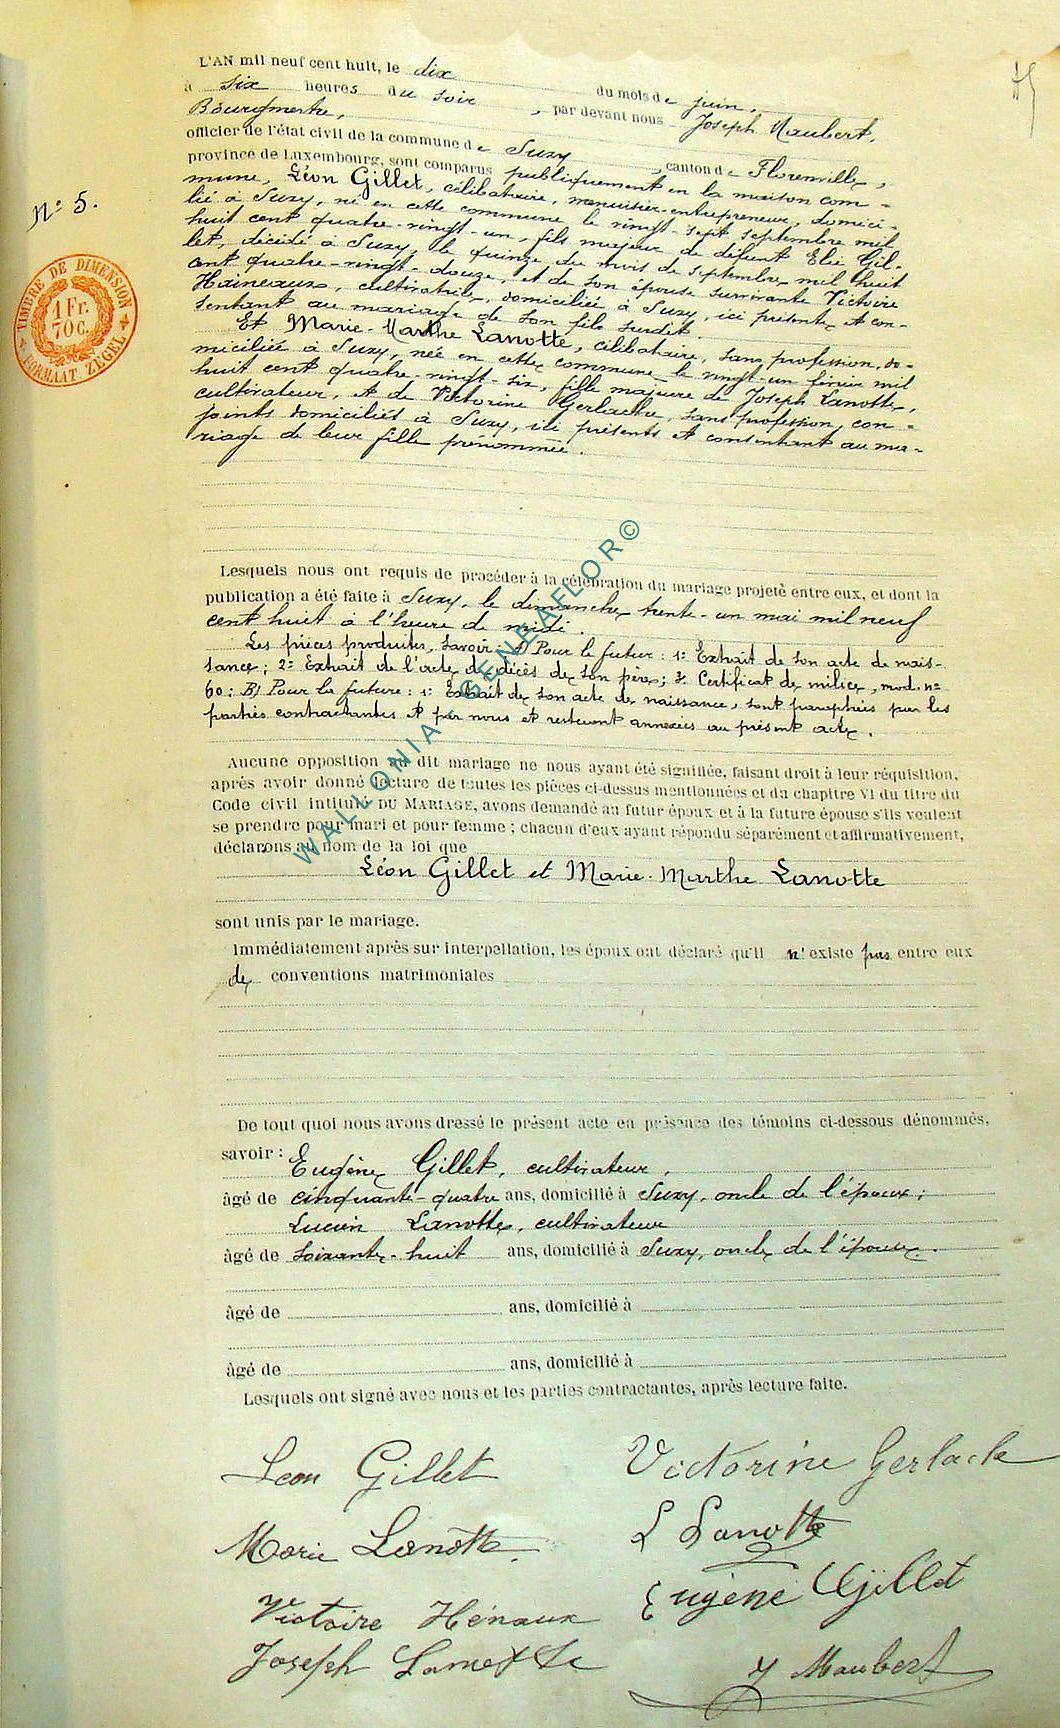 L'AN mil neuf cent huit, le dix du mois de juin,
à six heures du soir, par devant nous Joseph Maubert,
Bourgmestre,
officier de l'état civil de la commune de Suxy, canton de Florenville,
province de Luxembourg, sont comparus publiquement en la maison com-
mune, Léon Gillet, célibataire, menuisier-entrepreneur, domici-
lié à Suxy, né en cette commune le vingt-sept septembre mil
huit cent quatre-vingt-un, fils majeur de défunt Elie Gil-
let, décédé à Suxy, le quinze du mois de septembre mil huit
cent quatre-vingt-douze, et de son épouse survivante Victoire
Haineaux, cultivatrice, domiciliée à Suxy, ici présente et con-
sentant au mariage de son fils susdit.
Et Marie-Marthe Lanotte, célibataire, sans profession, do-
miciliée à Suxy, née en cette commune le vingt-un février mil
huit cent quatre-vingt-six, fille majeure de Joseph Lanotte,
cultivateur, et de Victorine Gerlache, sans profession, con-
joints domiciliés à Suxy, ici présents et consentant au ma-
riage de leur fille prénommée.
N° 5.
TIMBRE DE DIMENSION
1 Fr.
70 C.
FORMAAT ZEGEL
Lesquels nous ont requis de procéder à la célébration du mariage projeté entre eux, et dont la
publication a été faite à Suxy, le dimanche trente-un mai mil neuf
cent huit à l'heure de midi.
Les pièces produites, savoir: A) Pour le futur: 1° Extrait de son acte de nais-
sance; 2° Extrait de l'acte de décès de son père; 3° Certificat de milice, mod. n°
60; B) Pour la future: 1° Extrait de son acte de naissance, sont paraphées par les
parties contractantes et par nous et resteront annexées au présent acte.
Aucune opposition au dit mariage ne nous ayant été signifiée, faisant droit à leur réquisition,
après avoir donné lecture de toutes les pièces ci-dessus mentionnées et du chapitre VI du titre du
Code civil intitulé DU MARIAGE, avons demandé au futur époux et à la future épouse s'ils veulent
se prendre pour mari et pour femme; chacun d'eux ayant répondu séparément et affirmativement,
déclarons au nom de la loi que
Léon Gillet et Marie-Marthe Lanotte
sont unis par le mariage.
Immédiatement après sur interpellation, les époux ont déclaré qu'il n'existe pas entre eux
de conventions matrimoniales
De tout quoi nous avons dressé le présent acte en présence des témoins ci-dessous dénommés,
savoir: Eugène Gillet, cultivateur,
âgé de cinquante-quatre ans, domicilié à Suxy, oncle de l'époux;
Lucien Lanotte, cultivateur
âgé de soixante-huit ans, domicilié à Suxy, oncle de l'épouse.
âgé de ans, domicilié à
âgé de ans, domicilié à
Lesquels ont signé avec nous et les parties contractantes, après lecture faite.
Léon Gillet
Victorine Gerlache
Marie Lanotte
L Lanotte
Victoire Hénaux
Eugène Gillet
Joseph Lanotte
J Maubert
WALLONIA GENEAFLOR©